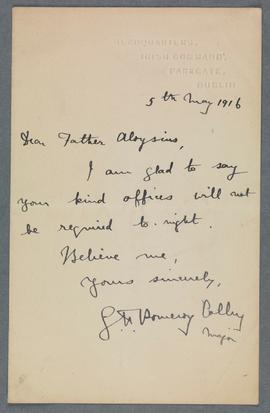 HEADQUARTERS,
IRISH COMMAND,
PARKGATE,
DUBLIN
5th May 1916
Dear Father Aloysius,
I am glad to say
your kind offices will not
be required to-night.
Believe me,
Yours sincerely,
Pomeroy Colley
Major